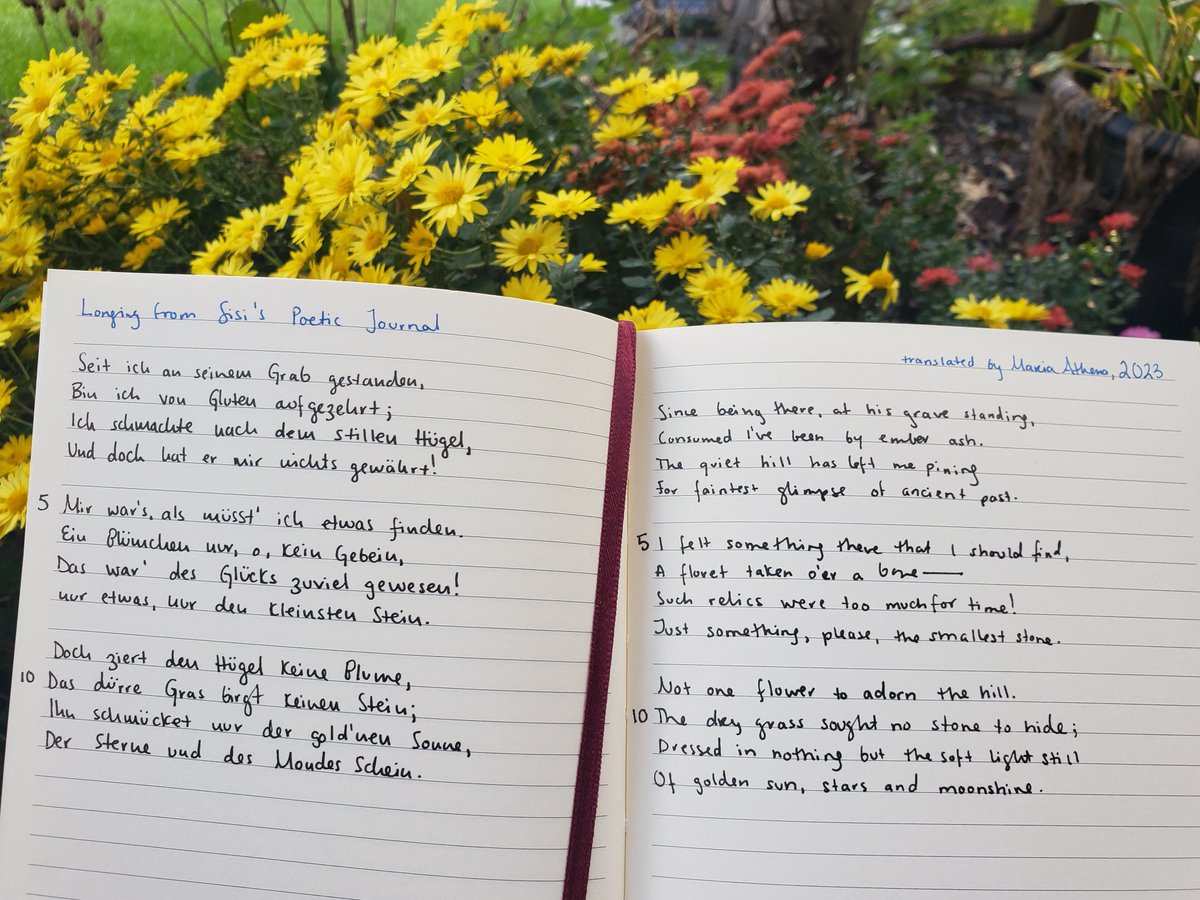 Longing from Sisi's Poetic Journal
Seit ich an seinem Grab gestanden,
Bin ich von Gluten aufgezehrt;
Ich schmachte nach dem stillen Hügel,
Und doch hat er mir nichts gewährt!
5 Mir war's, als müsst' ich etwas finden.
Ein Blümchen nur, o, kein Gebein,
Das war' des Glücks zuviel gewesen!
nur etwas, nur den kleinsten Stein.
Doch ziert den Hügel keine Blume,
10 Das dürre Gras birgt keinen Stein;
Ihn schmücket nur der gold'nen Sonne,
Der Sterne und des Mondes Schein.
translated by Maria Athena, 2023
Since being there, at his grave standing,
Consumed I've been by ember ash.
The quiet hill has left me pining
For faintest glimpse of ancient past.
5 I felt something there that I should find,
A floret taken o'er a bone—
Such relics were too much for time!
Just something, please, the smallest stone.
Not one flower to adorn the hill.
10 The dry grass sought no stone to hide;
Dressed in nothing but the soft light still
Of golden sun, stars and moonshine.